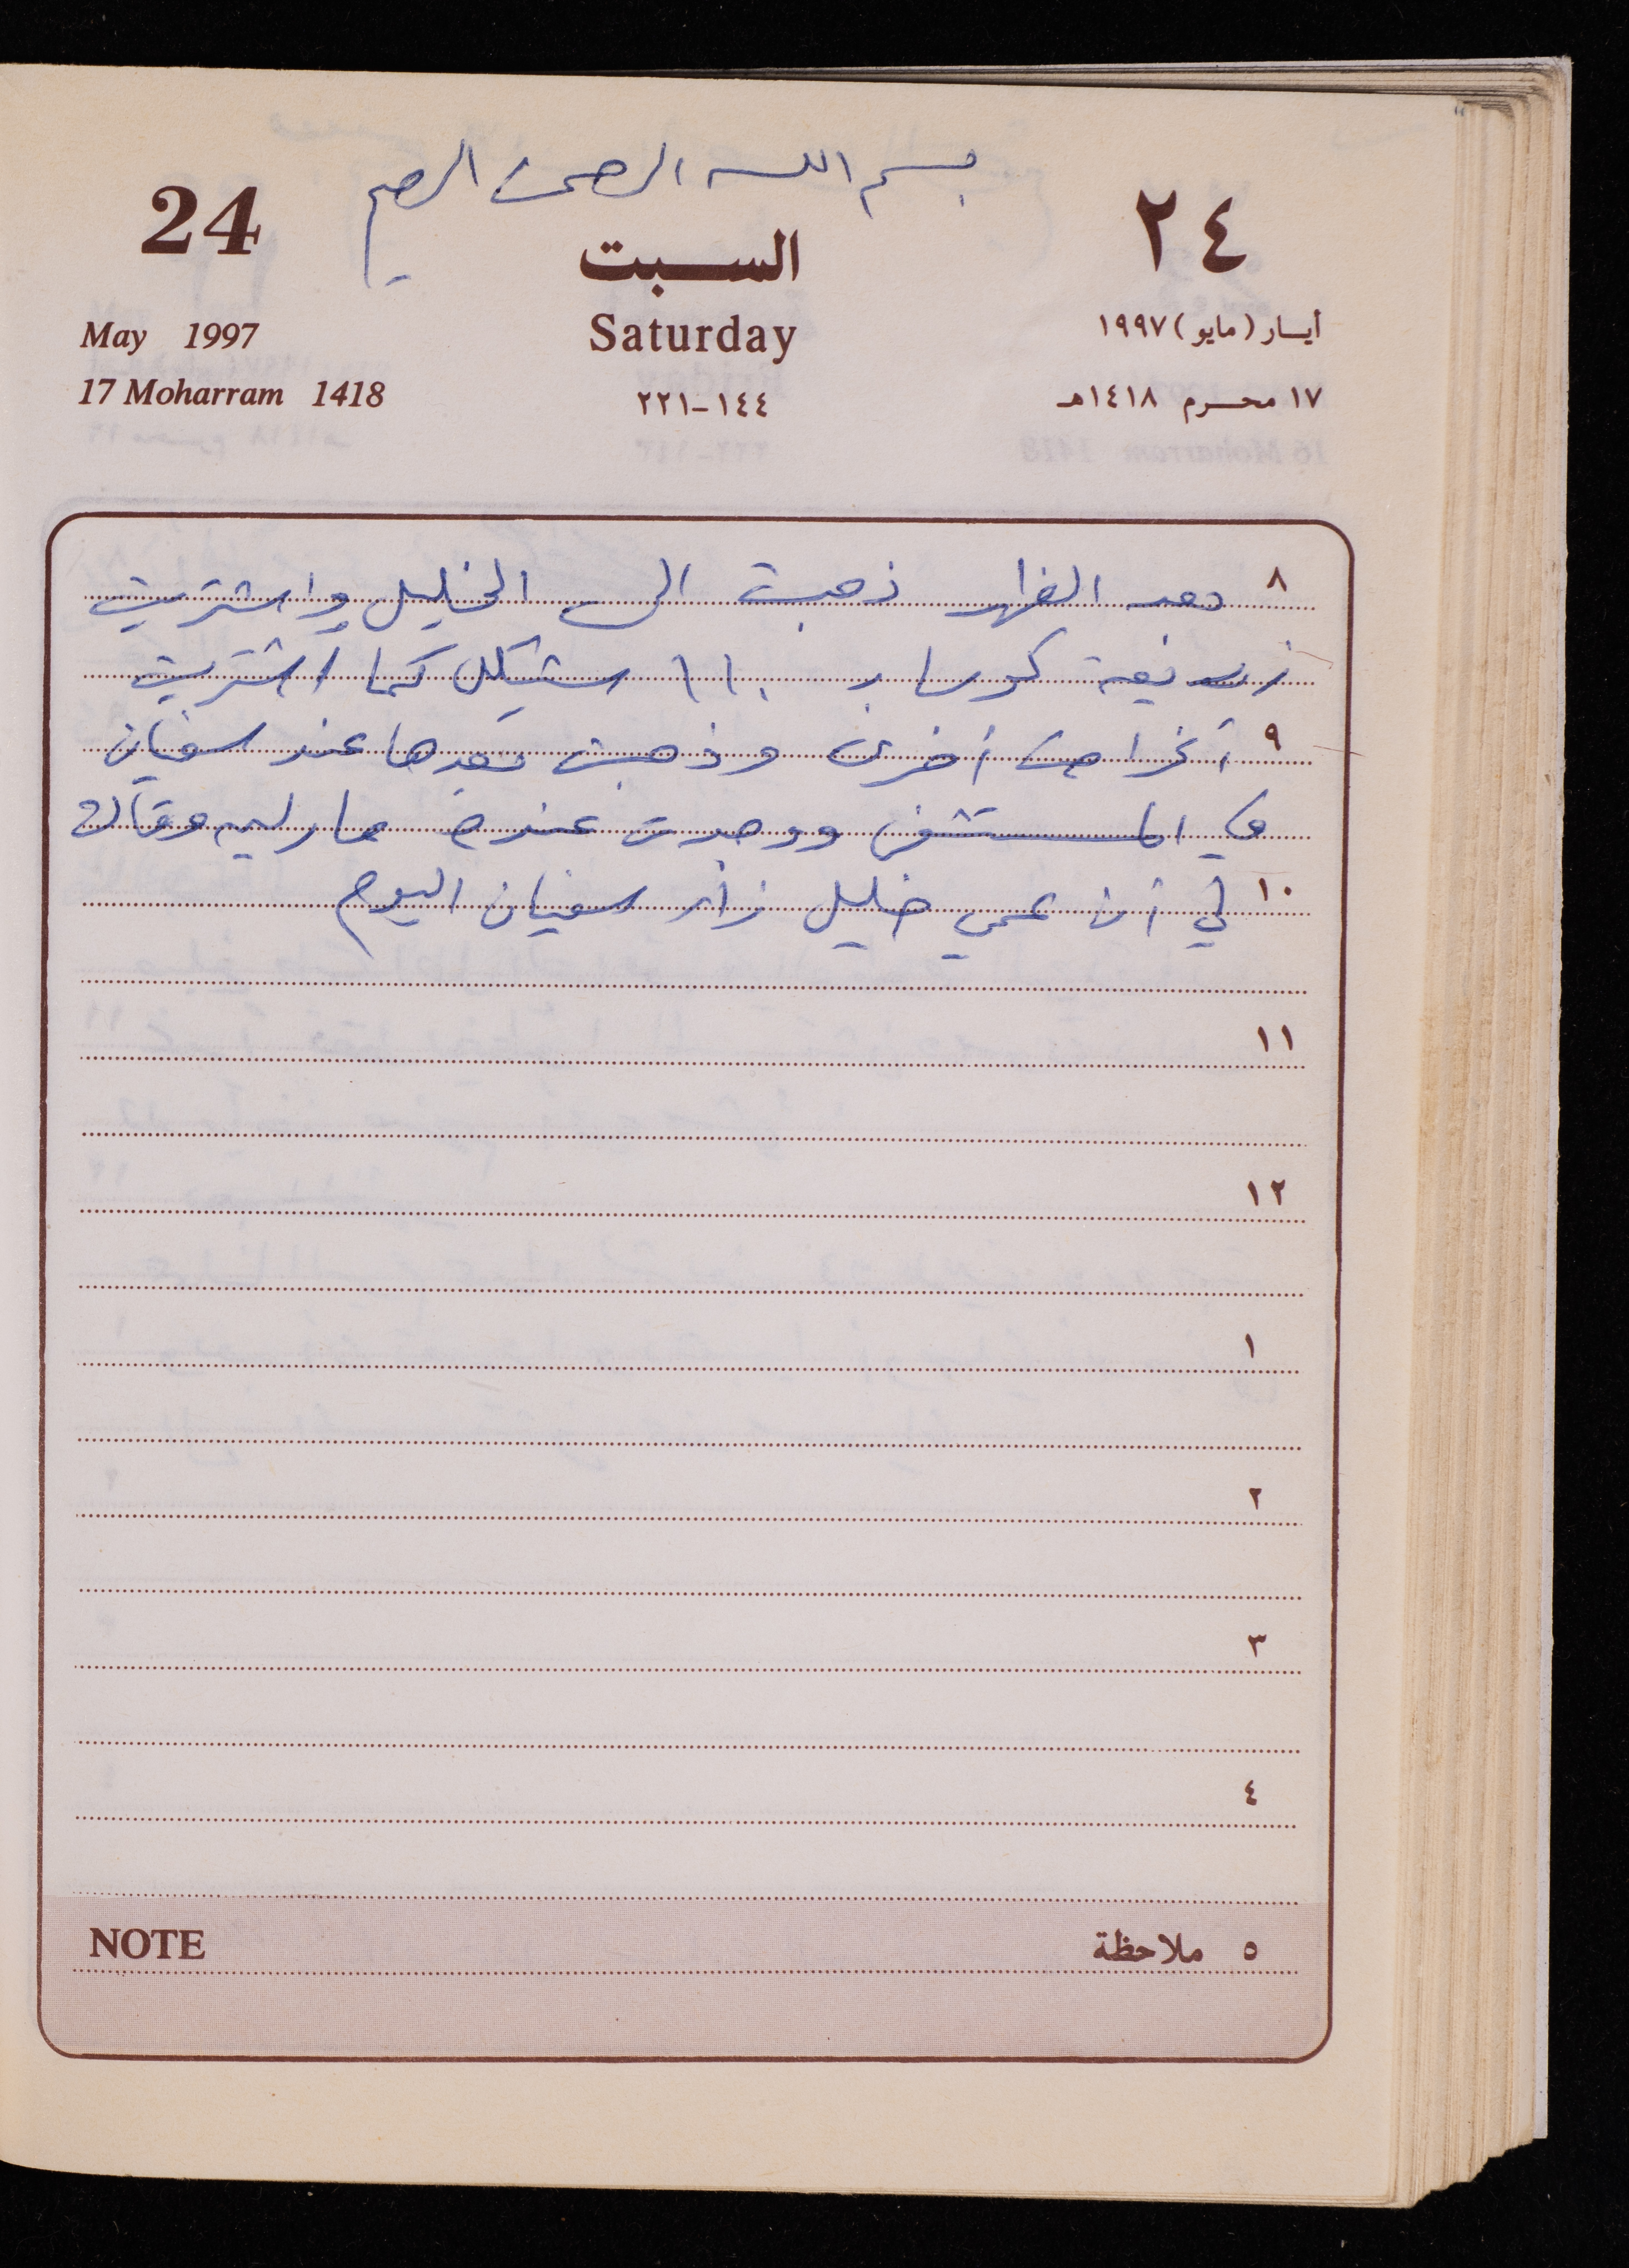 بسم الله الرحمن الرحيم
24
السبت
٢٤
May 1997
Saturday
أيـار (مايو) ١٩٩٧
17 Moharram 1418
١٤٤-٢٢١
١٧ محـرم ١٤١٨هـ
٨ بعد الظهر ذهبت الى الخليل واشتريت
كوسا بـ ١١٠ شيكل كما اشتريت
٩ أغراض أخرى وذهبت بعدها عند سفيان
في المستشفى ووجدت عنده وقال
١٠ لي أن عمي خليل زار سفيان اليوم
١١
١٢
١
٢
٣
٤
NOTE
٥ ملاحظة